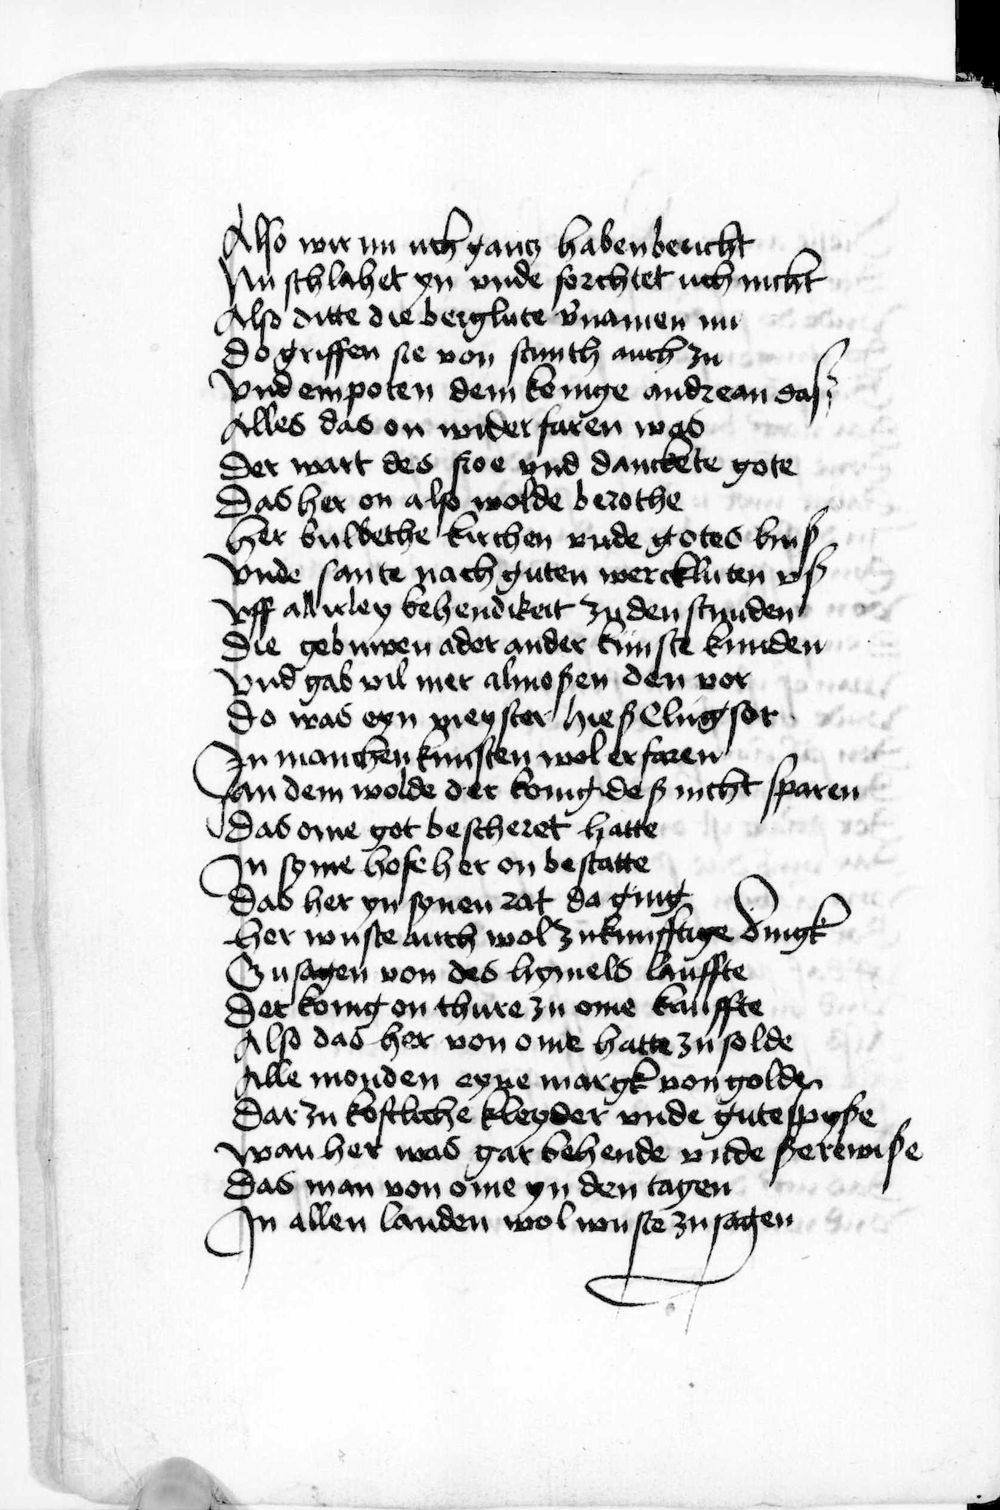 Also wir nu uch gantz haben bericht
Nu schlahet yn unde forchtet uch nicht
Also ditte die berglute v'namen nu
Do griffen sie von stunth auch zu
Vnd empoten dem konige andrean das
Alles das on wider faren was
Der wart des froe vnd danckete gote
Das her on also wolde berothe
Her buwethe kirchen vnde gotes huß
Vnde sante nach guten werckluten vß
Vff allirley behendikeit zu den stunden
Die gebuwen ader ander kunste kunden
Vnd gab vil mer almoßen den vor
Do was eyn meyster hieß Clugsor
In manchen kunsten wol erfaren
an dem wolde der konig deß nicht sparen
das ome got bescheret hatte
In syme hofe her on bestatte
Das her yn synen rat da ging
her wuste auch wol zukunfftige dingk
Zu sagen von des hymels lauffte
Der konig on thure zu ome kauffte
Also das her von ome hatte zu solde
Alle monden eyne margk von golde
Dar zu kostliche kleyder vnde gute spyße
wan her was gar behende vnde ßere wiße
Das man von ome yn den tagen
In allen landen wol wuste zu sagen